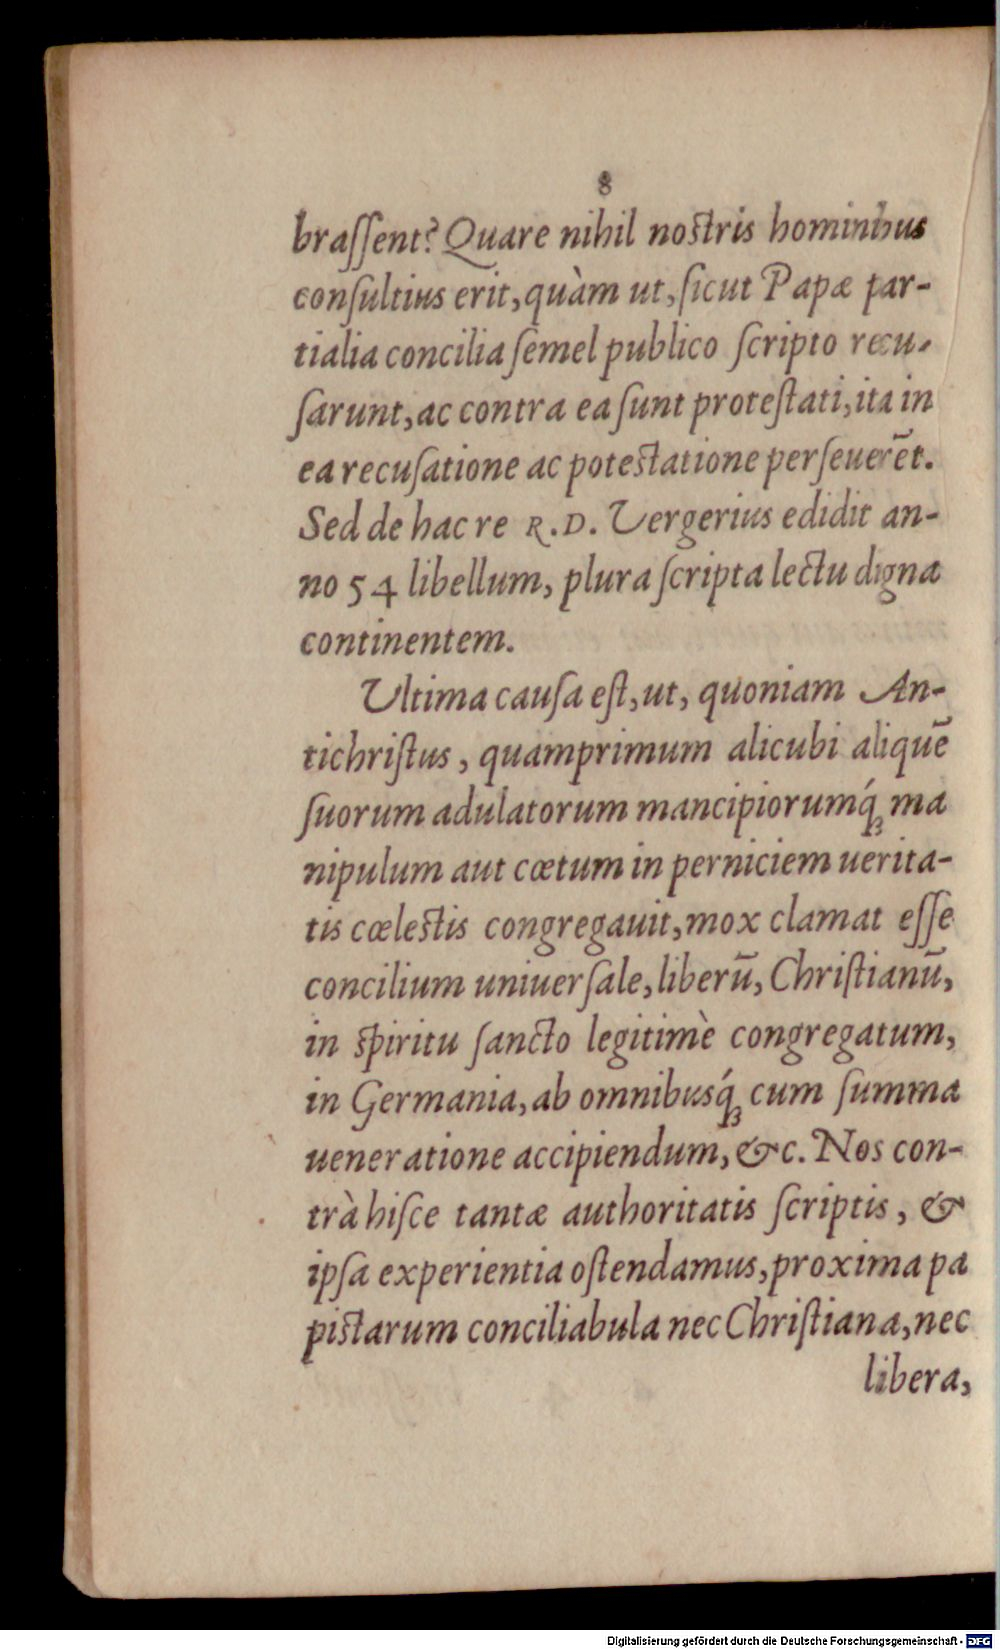 8
braſſent? Quare nihil noſtris hominbus
conſultius erit, quàm ut, ſicut Papæ par-
tialia concilia ſemel publico ſcripto recu-
ſarunt, ac contra ea ſunt proteſtati, ita in
ea recuſatione ac poteſtatione perſeuerēt.
Sed de hac re R. D. Vergerius edidit an-
no 54 libellum, plura ſcripta lectu digna
continentem.
Ultima cauſa eſt, ut, quoniam An-
tichriſtus, quamprimum alicubi aliquē
ſuorum adulatorum mancipiorumq́ꝫ ma
nipulum aut cœtum in perniciem uerita-
tis cœleſtis congregauit, mox clamat eſſe
concilium uniuerſale, liberū, Chriſtianū,
in ſpiritu ſancto legitimè congregatum,
in Germania, ab omnibusq́ꝫ cum ſumma
ueneratione accipiendum, &c. Nos con-
trà hiſce tantæ authoritatis ſcriptis, &
ipſa experientia oſtendamus, proxima pa
piſtarum conciliabula nec Chriſtiana, nec
libera,
Digitalisierung gefördert durch die Deutsche Forschungsgemeinschaft - DFG